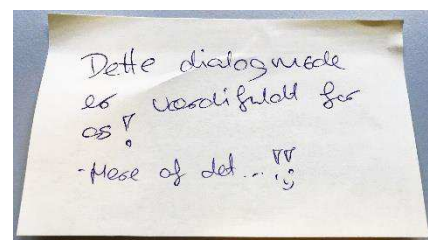 Dette dialogmøde
er værdifuldt for
os!
-Mere af det...!!